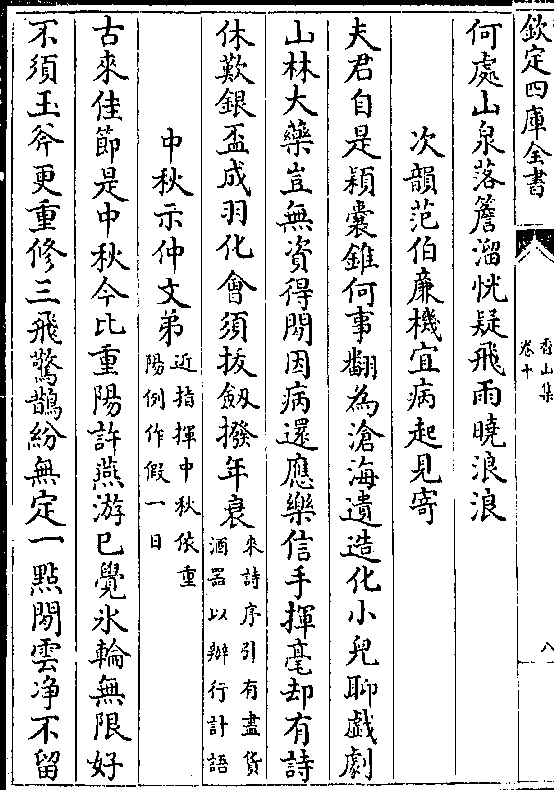 欽定四庫全書
香山集
卷十
八
何處山泉落簷溜恍疑飛雨曉浪浪
次韻范伯廉機宜病起見寄
夫君自是穎囊錐何事翻為滄海遺造化小兒聊戲劇
山林大藥豈無資得閒因病還應樂信手揮毫却有詩
休歎銀盃成羽化會須拔劔撥年衰來詩序引有盡貨
酒器以辦行計語
中秋示仲文弟近指揮中秋依重
陽例作假一日
古來佳節是中秋今比重陽許燕游已覺氷輪無限好
不須玉斧更重修三飛驚鵲紛無定一點閒雲净不留